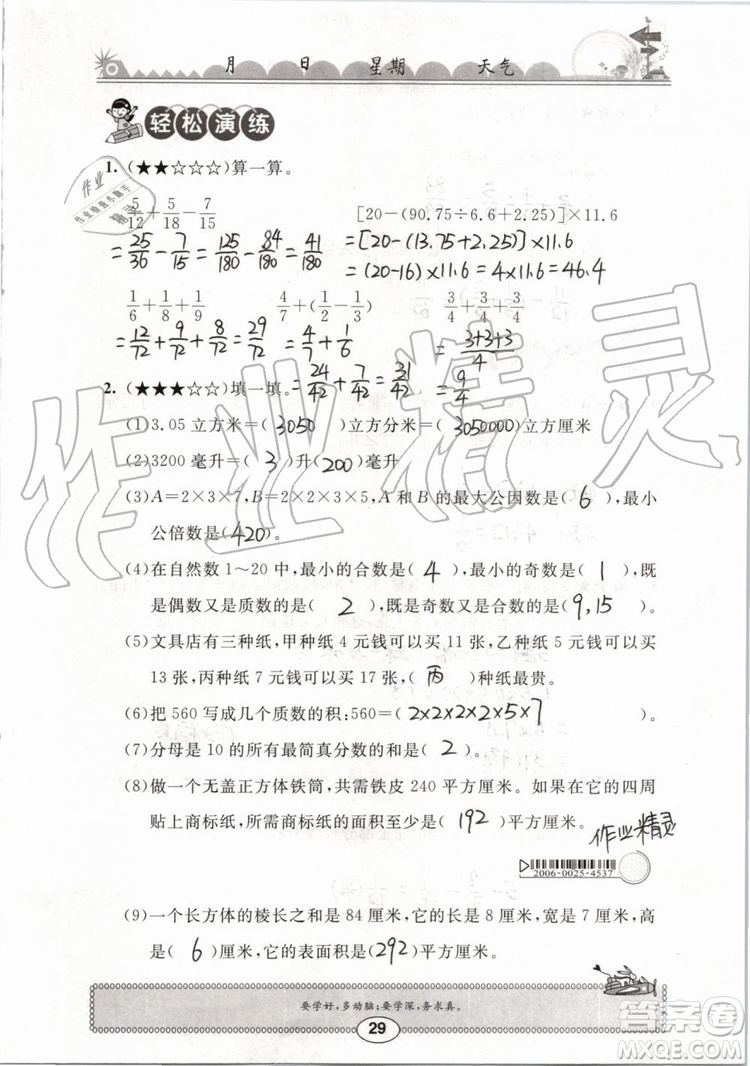 月 日 星期 天气
轻松演练
1. (★★☆☆☆)算一算。
5/12+5/18-7/15 [20-(90.75÷6.6+2.25)]×11.6
=25/36-7/15=125/180-84/180=41/180 =[20-(13.75+2.25)]×11.6
=(20-16)×11.6=4×11.6=46.4
1/6+1/8+1/9 4/7+(1/2-1/3) 3/4+3/4+3/4
=12/72+9/72+8/72=29/72 =4/7+1/6 =3+3+3/4
=24/42+7/42=31/42 =9/4
2. (★★★☆☆)填一填。
(1)3.05立方米=(3050)立方分米=(3050000)立方厘米
(2)3200毫升=(3)升(200)毫升
(3)A=2×3×7,B=2×2×3×5,A和B的最大公因数是(6),最小
公倍数是(420)。
(4)在自然数1~20中,最小的合数是(4),最小的奇数是(1),既
是偶数又是质数的是(2),既是奇数又是合数的是(9,15)。
(5)文具店有三种纸,甲种纸4元钱可以买11张,乙种纸5元钱可以买
13张,丙种纸7元钱可以买17张。(丙)种纸最贵。
(6)把560写成几个质数的积:560=(2×2×2×2×5×7)。
(7)分母是10的所有最简真分数的和是(2)。
(8)做一个无盖正方体铁筒,共需铁皮240平方厘米。如果在它的四周
贴上商标纸,所需商标纸的面积至少是(192)平方厘米。
作业精灵
2006-0025-4537
(9)一个长方体的棱长之和是84厘米,它的长是8厘米,宽是7厘米,高
是(6)厘米,它的表面积是(292)平方厘米。
要学好,多动脑;要学深,务求真。
29
作业精灵
答案卷
MXQE.COM